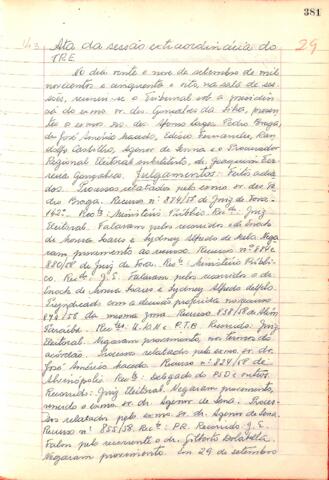 381
29
Ata da sessão extraordinária do
TRE
Ao dia vinte e nove de setembro de mil
novecentos e cinquenta e oito, na sala de ses-
sões, reuniu-se o Tribunal sob a presidên-
cia do exmo. sr. des. da Silva, presen-
tes o exmo. srs. des. Afonso Lages, Pedro Braga,
drs. José Américo Macedo, Edísio Fernandes, Ran-
dolfo Castilho, Agenor de Senna e o Procurador
Regional Eleitoral substituto, dr. Joaquim Fer-
reira Gonçalves. Julgamentos: Feitos adia-
dos. Processos relatados pelo exmo. sr. des. Pe-
dro Braga. Recurso nº 884/58 de Juiz de Fora-
142ª. Recte: Ministério Público Recdo: Juiz
Eleitoral. Falaram pelos recorridos o dr. Enock
de Soares e Sydney Alfredo de Nega-
ram provimento ao recurso. Recurso nº
880/58 de Juiz de Fora. Recte: Ministério Públi-
co. Recdo: J.E. Falaram pelos recorridos o dr.
Enock de Soares e Sydney Alfredo
Prejudicado com a decisão proferida no recurso
879/58 da mesma zona. Recurso 838/58 de Além
Paraíba. Rectes: U.D.N e P.T.B. Recorrido: Juiz
Eleitoral. Negaram provimento, nos termos do
acórdão. Processo relatado pelo exmo. sr. dr.
José Américo Macedo. Recurso nº 824/58 de
Abrenópolis. Recte: delegado do PSD e outro.
Recorrido: Juiz Eleitoral. Negaram provimento,
vencido o exmo. sr. dr. Agenor de Sena. Proces-
sos relatados pelo exmo. sr. dr. Agenor de Sena.
Recurso nº 855/58. Recte: P.R. Recorrido: J.E.
Falou pelo recorrente o dr. Gilberto Dolabella
Negaram provimento. Em 29 de setembro